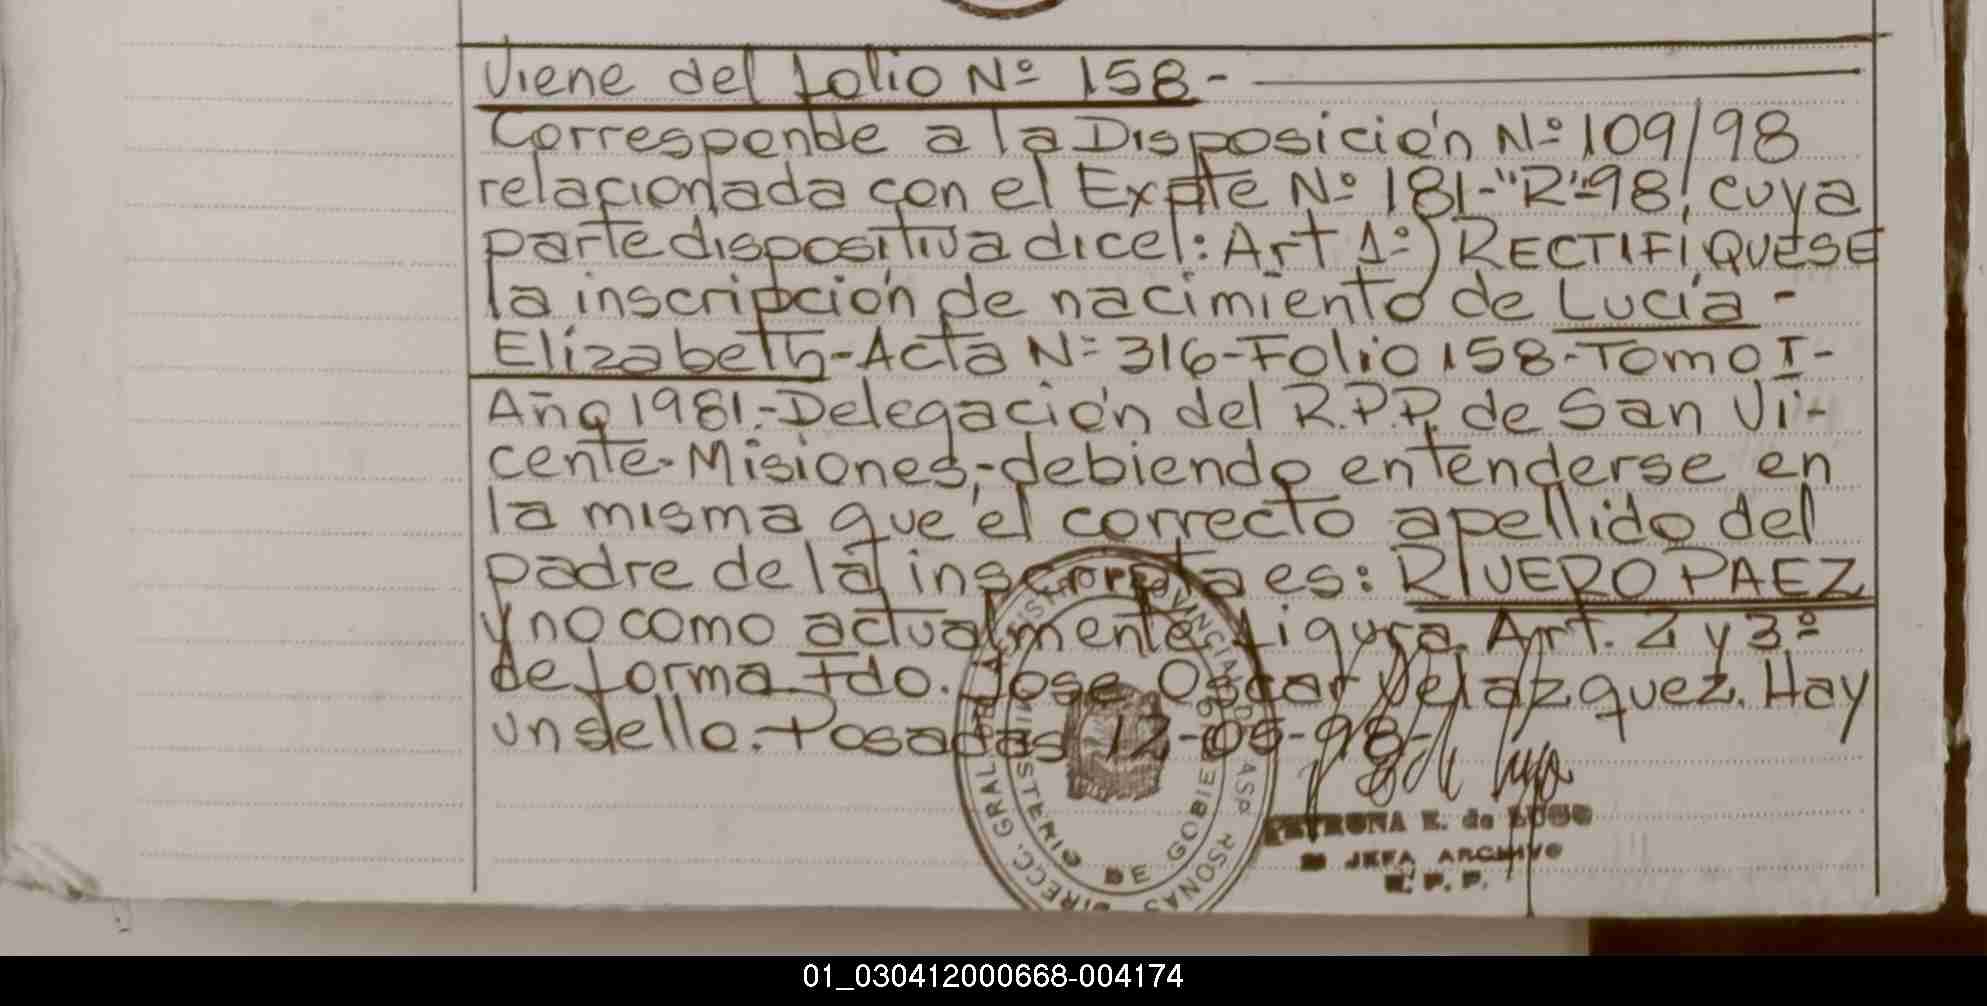 Viene del folio Nº 158-
Corresponde a la Disposición Nº 109/98
relacionada con el Expte Nº 181-"R"-98, cuya
parte dispositiva dice: Art 1º) RECTIFIQUESE
la inscripción de nacimiento de Lucía -
Elizabeth-Acta Nº 316-Folio 158-Tomo I-
Año 1981.-Delegación del R.P.P. de San Vi-
cente-Misiones,-debiendo entenderse en
la misma que el correcto apellido del
padre de la inscripta es: RIVERO PAEZ
y no como actualmente figura. Art. 2 y 3º
de forma. Fdo. Jose Oscar Velazquez. Hay
un sello. Posadas 12-05-98-
DIRECC. GRAL
PROVINCIAL
MINISTERIO DE GOBIE
PETRONA E. de LUGO
JEFA ARCHIVO
R. P. P.
01_030412000668-004174